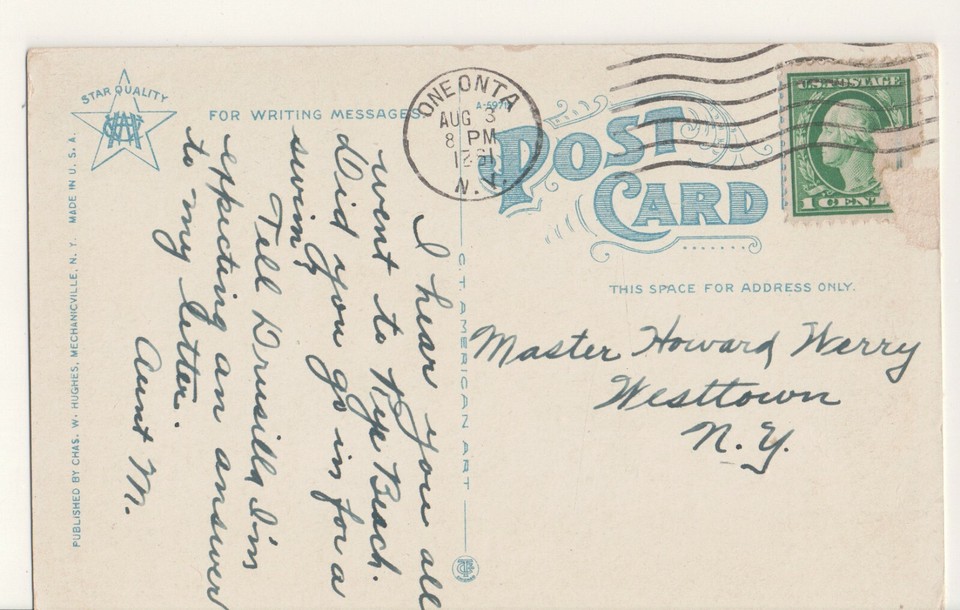 STAR QUALITY
FOR WRITING MESSAGES
A-5970
ONEONTA
AUG 3
8 PM
N.Y.
U.S. POSTAGE
1 CENT
POST
CARD
THIS SPACE FOR ADDRESS ONLY.
Master Howard Werry
Westtown
N.Y.
I hear you all
went to Rye Beach.
Did you go in for a
swim?
Tell Drusilla I'm
expecting an answer
to my letter.
Aunt M.
C.T. AMERICAN ART
PUBLISHED BY CHAS. W. HUGHES, MECHANICVILLE, N. Y. MADE IN U. S. A.